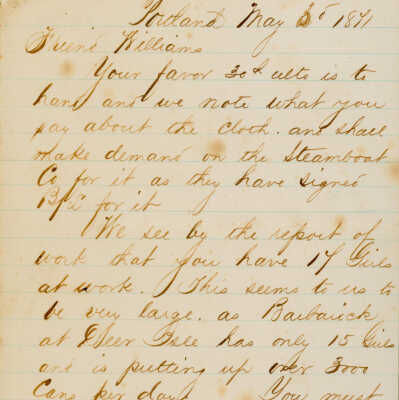 Portland May 5th 1871
Friend Williams
Your favor 30th ulto is to
hand and we note what you
say about the cloth. and shall
make demand on the Steamboat
Co for it as they have signed
B/L for it
We see by the report of
work that you have 17 Girls
at work. This seems to us to
be very large. as Barbarick
at Deer Isle has only 15 Girls
and is putting up over 3000
Cans per day. You must